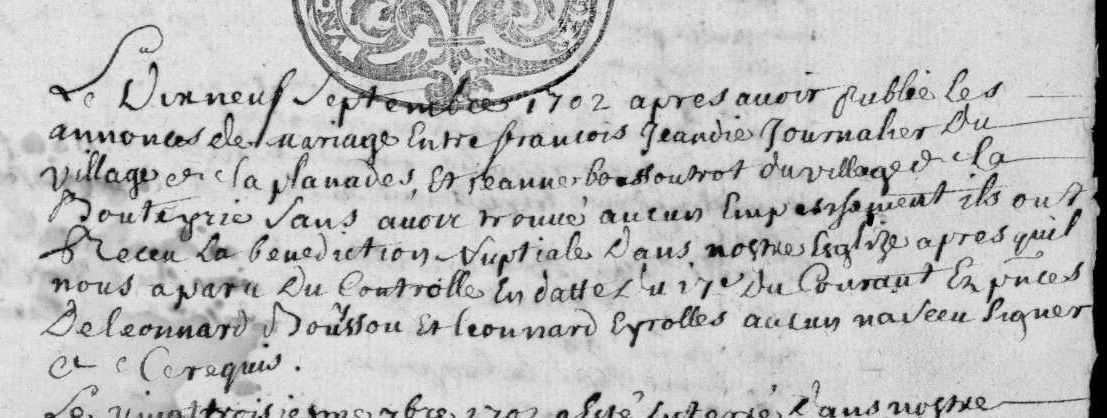 Le Dixneuf Septembre 1702 apres avoir publié Les
annonces de Mariage Entre francois Jeandie Journalier Du
village de la planades Et jeanne boussoutrot du village de la
Bouteyrie Sans avoir trouvé aucun Empeschement ils ont
Receu La benediction Nuptiale Dans nostre Eglize apres quil
nous a paru Du Controlle En datte du 17e Du Courant En pnces
De leonnard Boussou Et leonnard Eyrolles aucun na sceu signer
de ce requis.
Le vingt troisieme 1702 a Esté Enterré Dans nostre